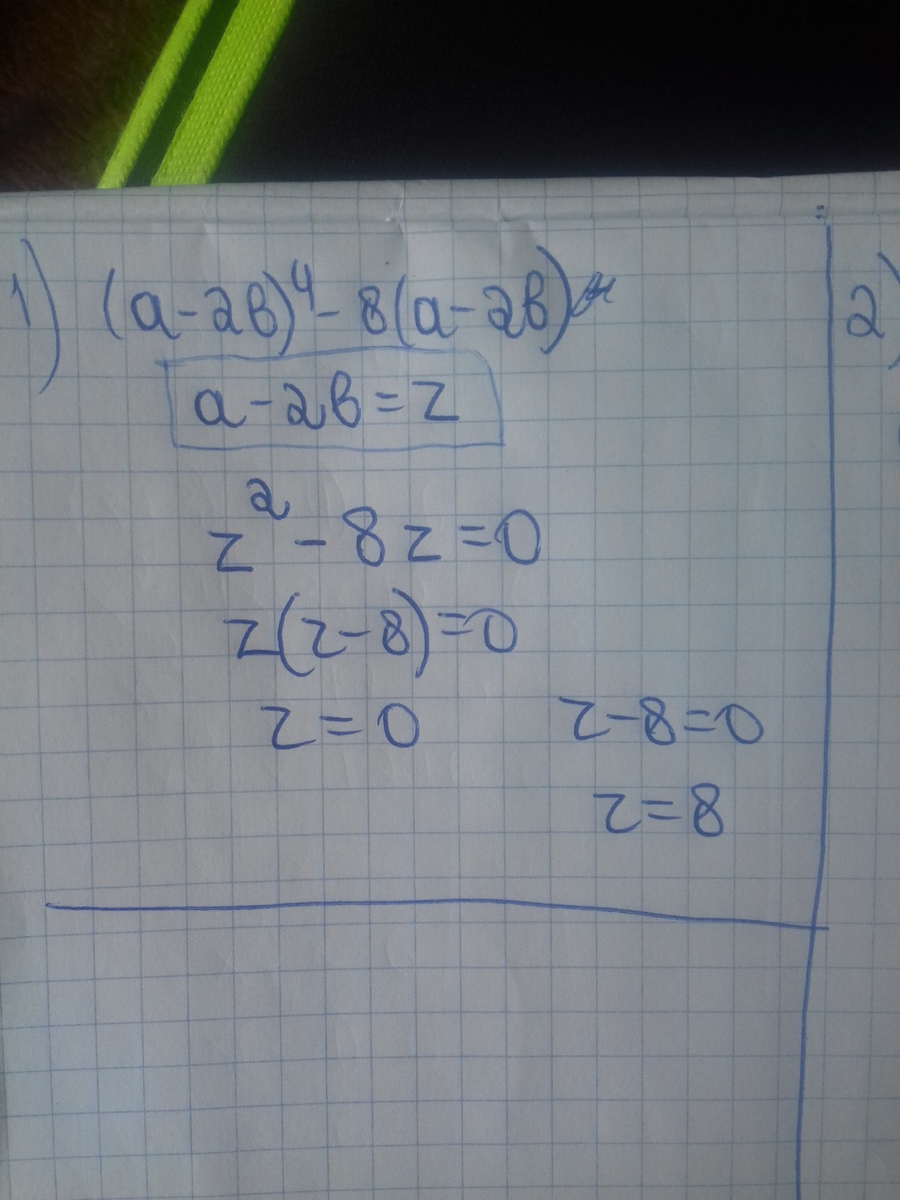 1) (a-2b)⁴ - 8(a-2b)
a-2b=z
z²-8z=0
z(z-8)=0
z=0 z-8=0
z=8
2)